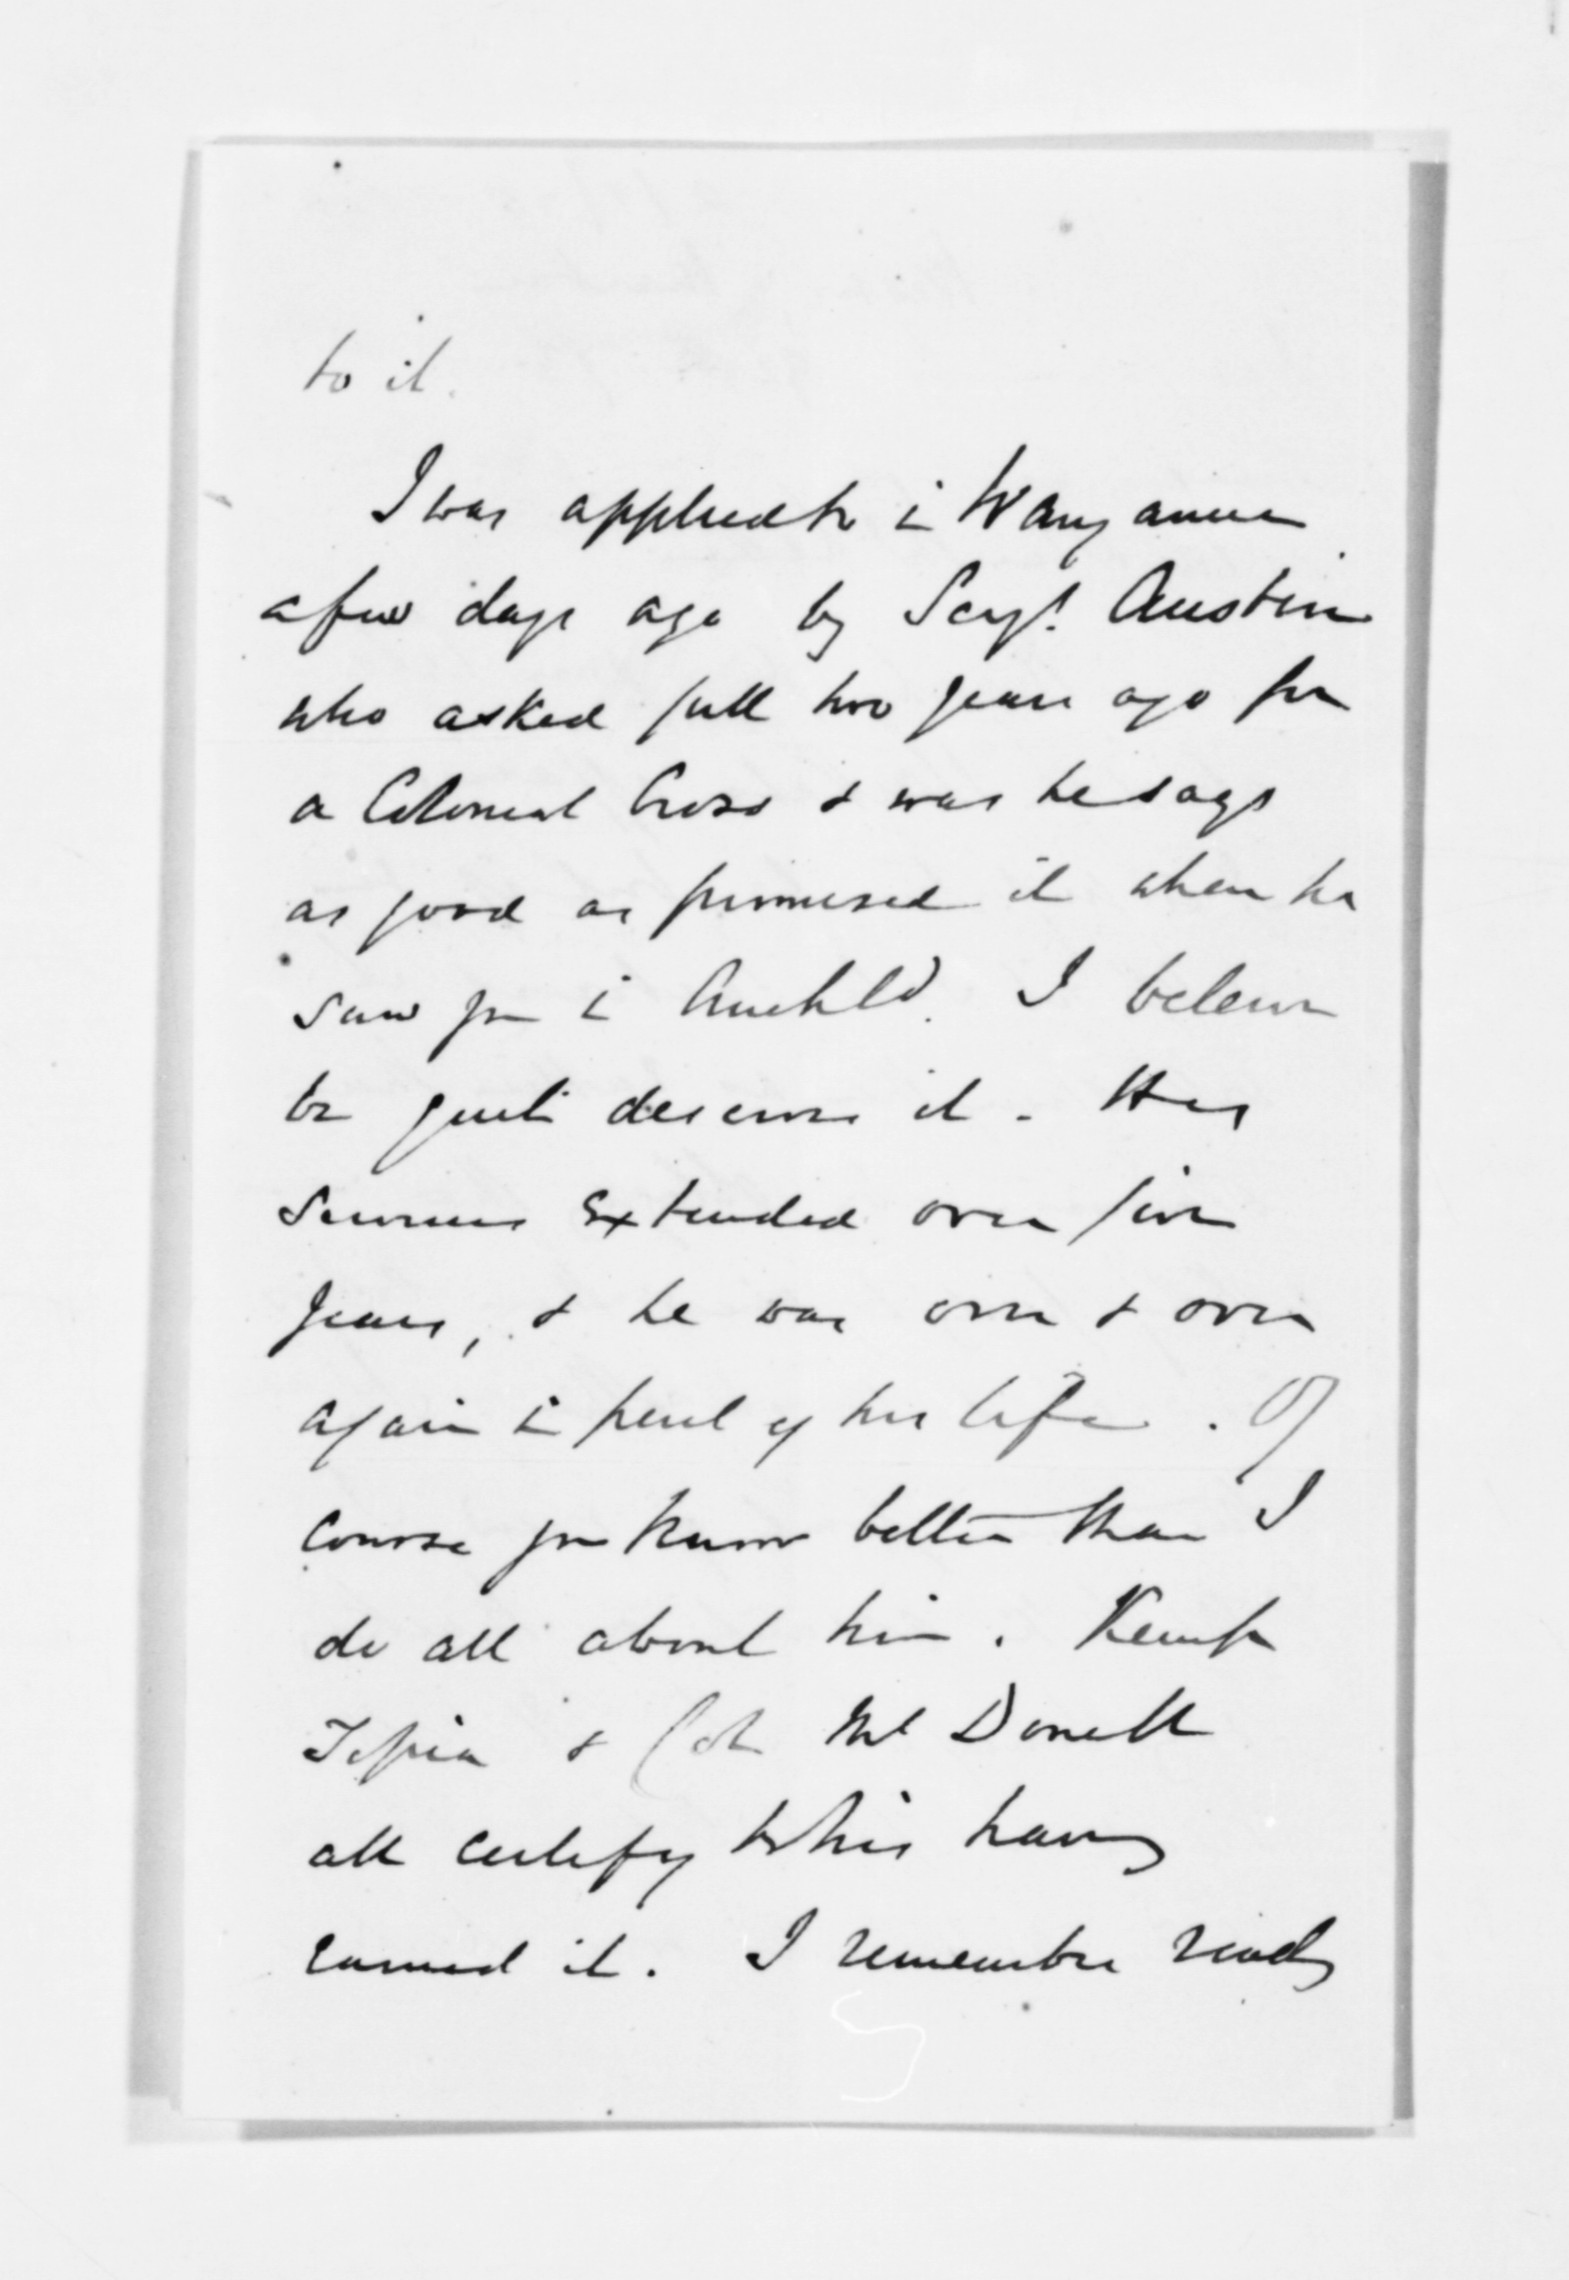 to it.
I was applied to in Wanganui
a few days ago by Sergt. Austin
who asked full two years ago for
a Colonial Cross & was he says
as good as promised it when he
saw you in Auckld. I believe
he quite deserves it - His
services extended over five
years, & he was over & over
again in peril of his life. Of
course you know better than I
do all about him. Kemp
Topia & Col McDonell
all certify to his having
earned it. I remember reading